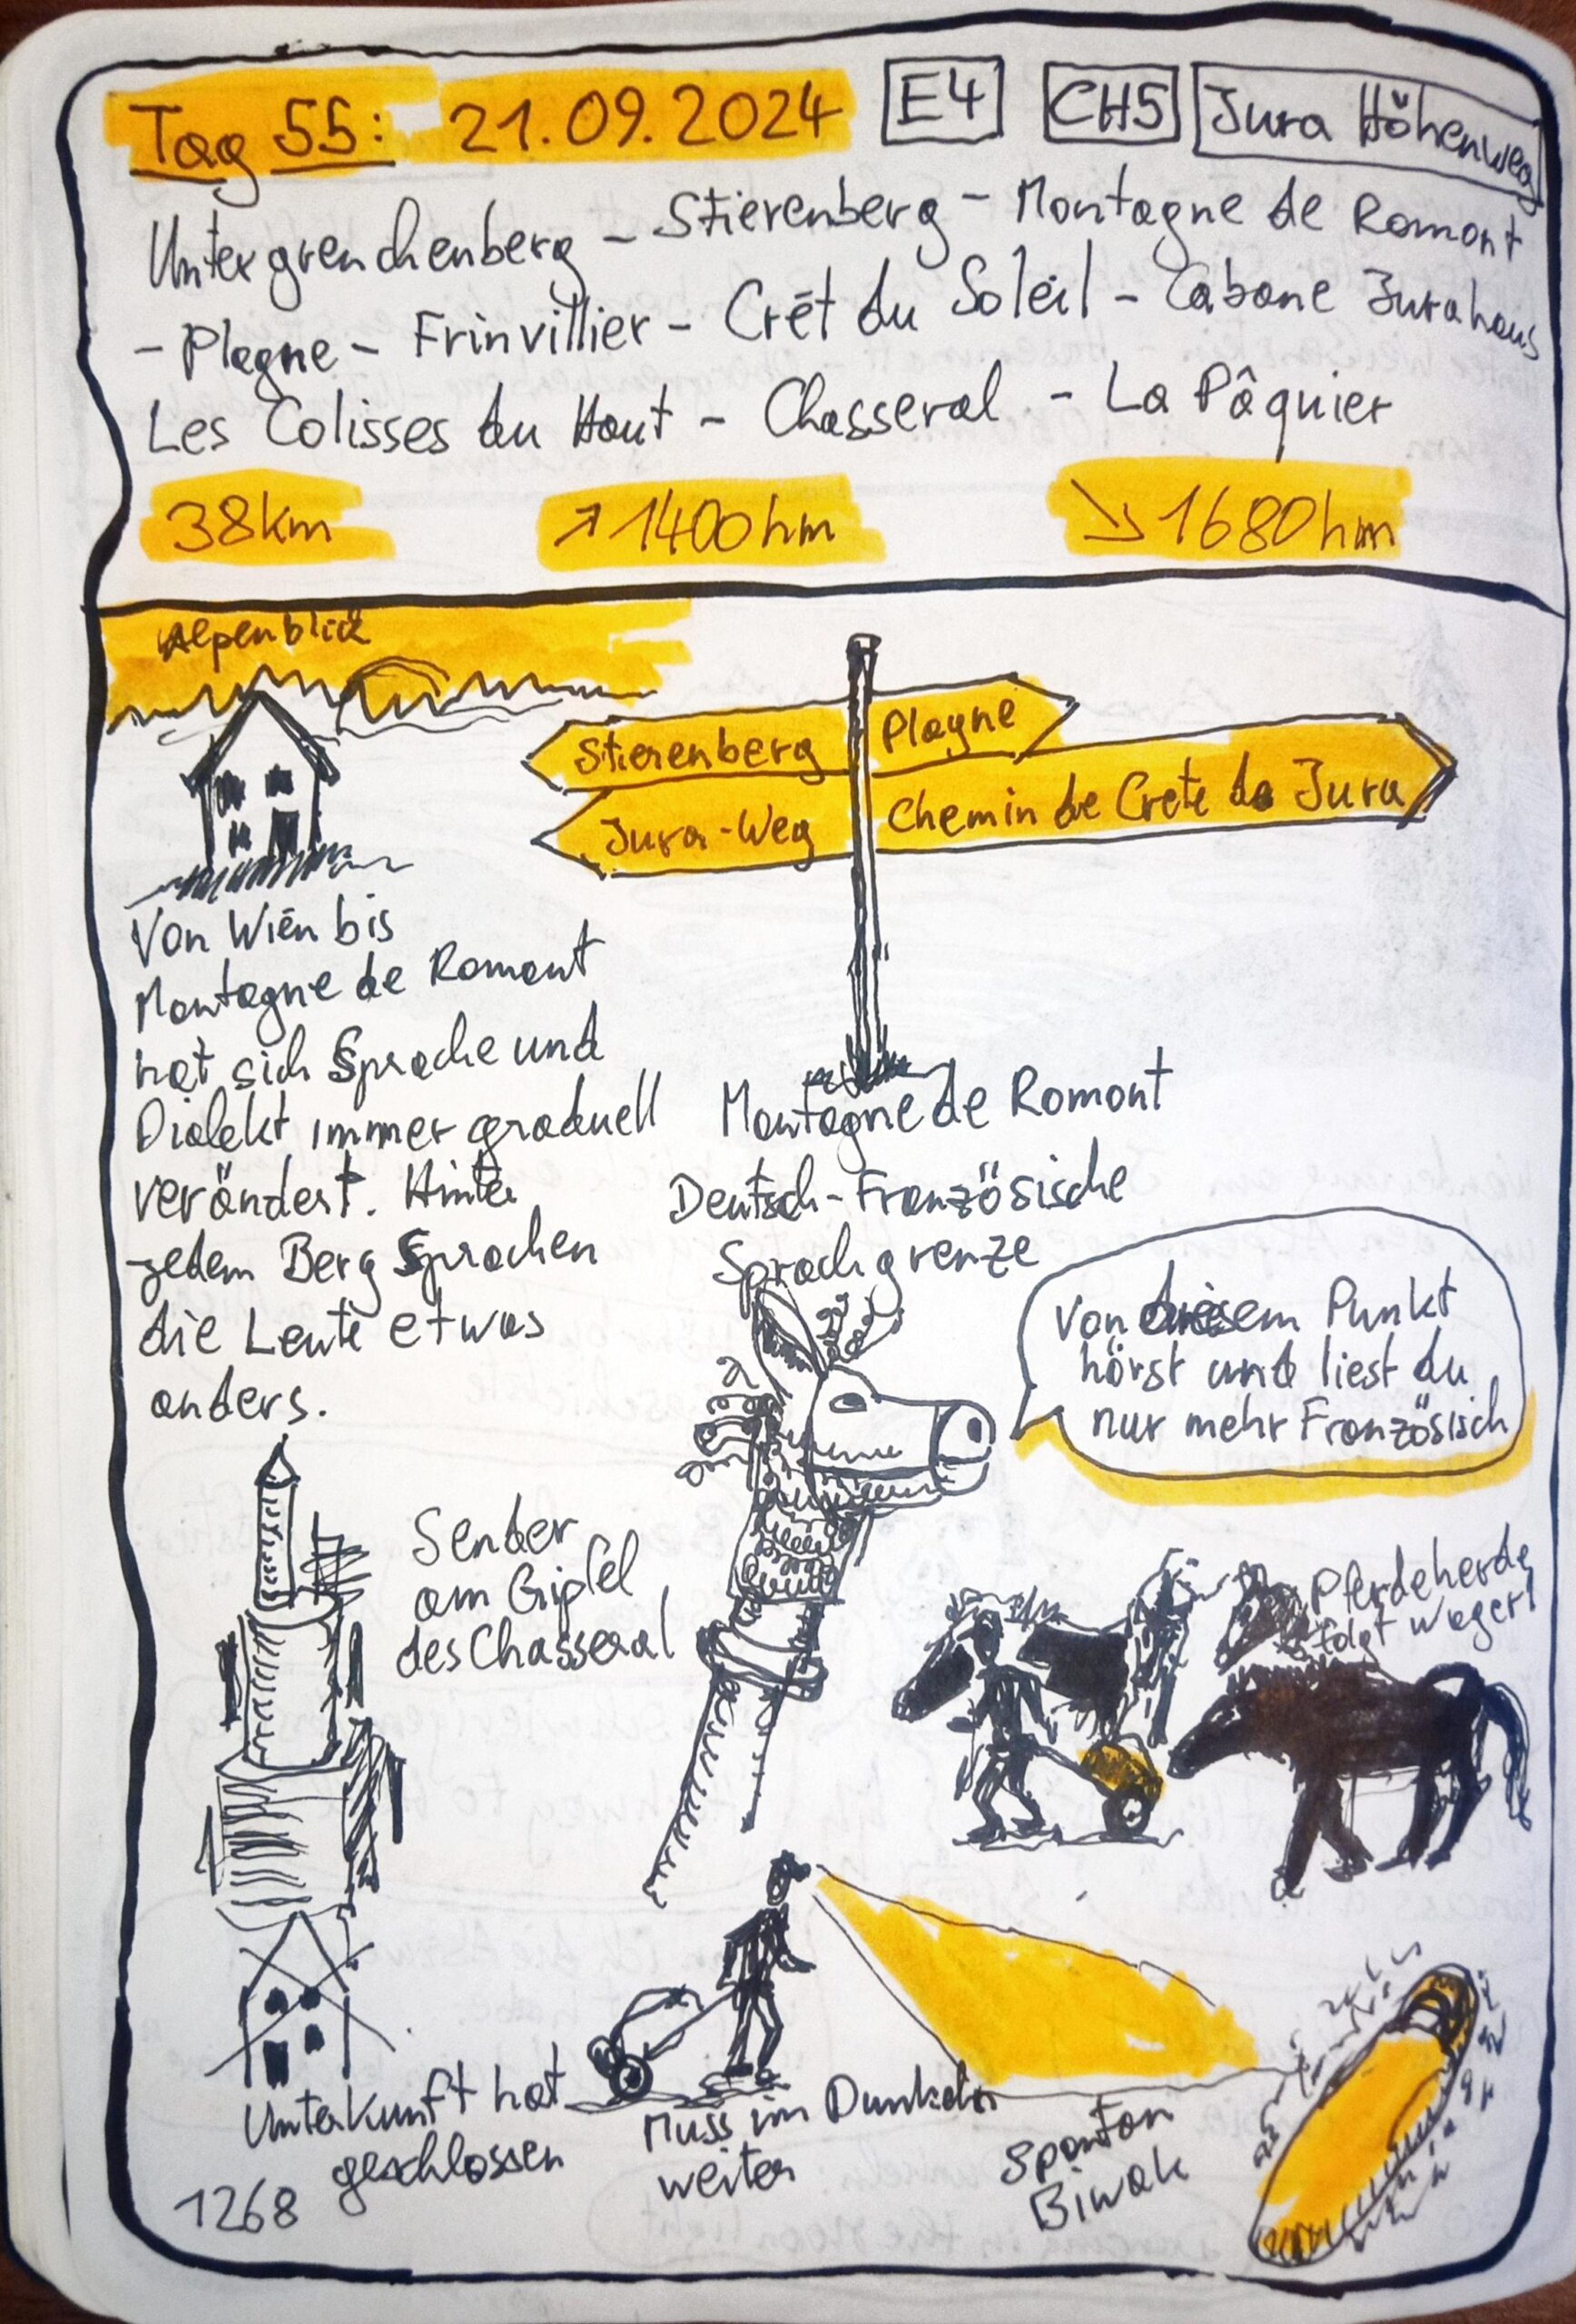 Tag 55: 21.09.2024 E4 CH5 Jura Höhenweg
Untergrenchenberg - Stierenberg - Montagne de Romont
- Plagne - Frinvillier - Crêt du Soleil - Cabane Jurahaus
Les Colisses du Haut - Chasseral - La Pâquier
38km ↗1400hm ↘1680hm
Alpenblick
Stierenberg
Plagne
Jura-Weg
Chemin de Crete de Jura
Von Wien bis
Montagne de Romont
hat sich Sprache und
Dialekt immer graduell
verändert. Hinter
jedem Berg sprachen
die Leute etwas
anders.
Montagne de Romont
Deutsch-Französische
Sprachgrenze
Von diesem Punkt
hörst und liest du
nur mehr Französisch
Sender
am Gipfel
des Chasseral
Pferdeherde
folgt Wagerl
Unterkunft hat
geschlossen
Muss im Dunkeln
weiter
Spontan
Biwak
1268